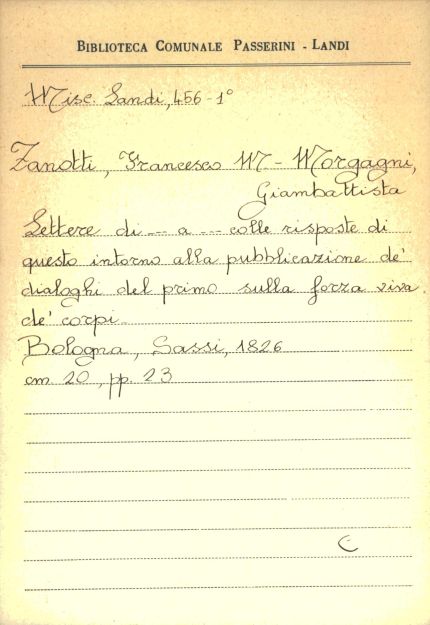 BIBLIOTECA COMUNALE PASSERINI - LANDI
Misc. Landi, 456-1°
Zanotti, Francesco M. - Morgagni,
Giambattista
Lettere di --- a --- colle risposte di
questo intorno alla pubblicazione de'
dialoghi del primo sulla forza viva
de' corpi
Bologna, Sassi, 1826
cm. 20, pp. 23